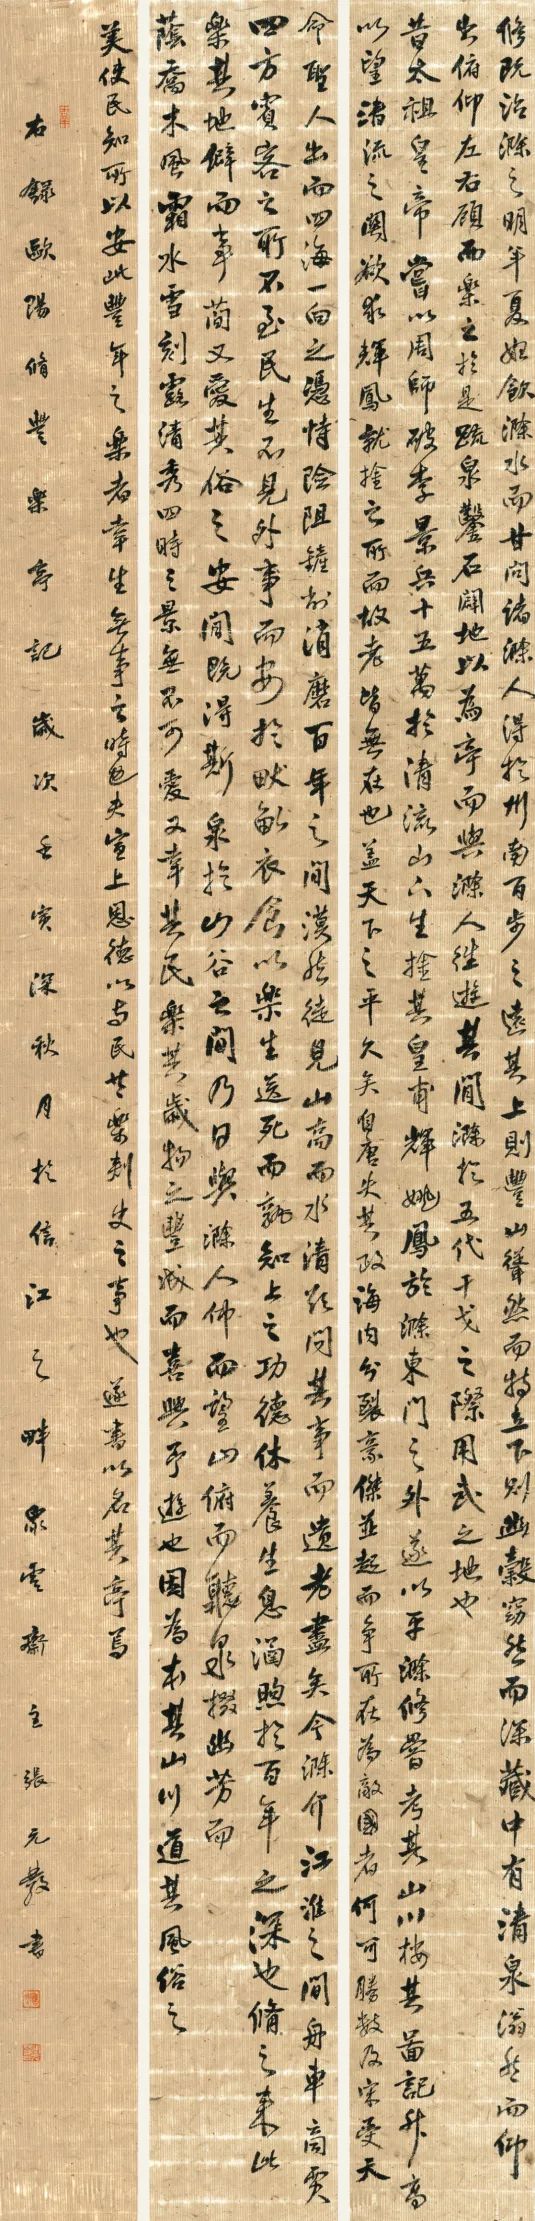 修既治滁之明年夏始飲滁水而甘問諸滁人得於州南百步之遠其上則豐山聳然而特立下則幽穀窈然而深藏中有清泉滃然而仰
出俯仰左右顧而樂之於是疏泉鑿石闢地以為亭而與滁人往遊其間滁於五代干戈之際用武之地也
昔太祖皇帝嘗以周師破李景兵十五萬於清流山下生擒其皇甫輝姚鳳於滁東門之外遂以平滁修嘗考其山川按其圖記升高
以望清流之關欲求輝鳳就擒之所而故老皆無在也蓋天下之平久矣自唐失其政海內分裂豪傑並起而爭所在為敵國者何可勝數及宋受天
命聖人出而四海一向之憑恃險阻鏟削消磨百年之間漠然徒見山高而水清欲問其事而遺老盡矣今滁介江淮之間舟車商賈
四方賓客之所不至民生不見外事而安於畎畝衣食以樂生送死而孰知上之功德休養生息涵煦於百年之深也脩之來此
樂其地僻而事簡又愛其俗之安閒既得斯泉於山谷之間乃日與滁人仰而望山俯而聽泉掇幽芳而
蔭喬木風霜水雪刻露清秀四時之景無不可愛又幸其民樂其歲物之豐成而喜與予遊也因為本其山川道其風俗之
美使民知所以安此豐年之樂者幸生無事之時也夫宣上恩德以與民共樂刺史之事也遂書以名其亭焉
右錄歐陽脩豐樂亭記歲次壬寅深秋月於信江之畔泉雲齋主張元教書